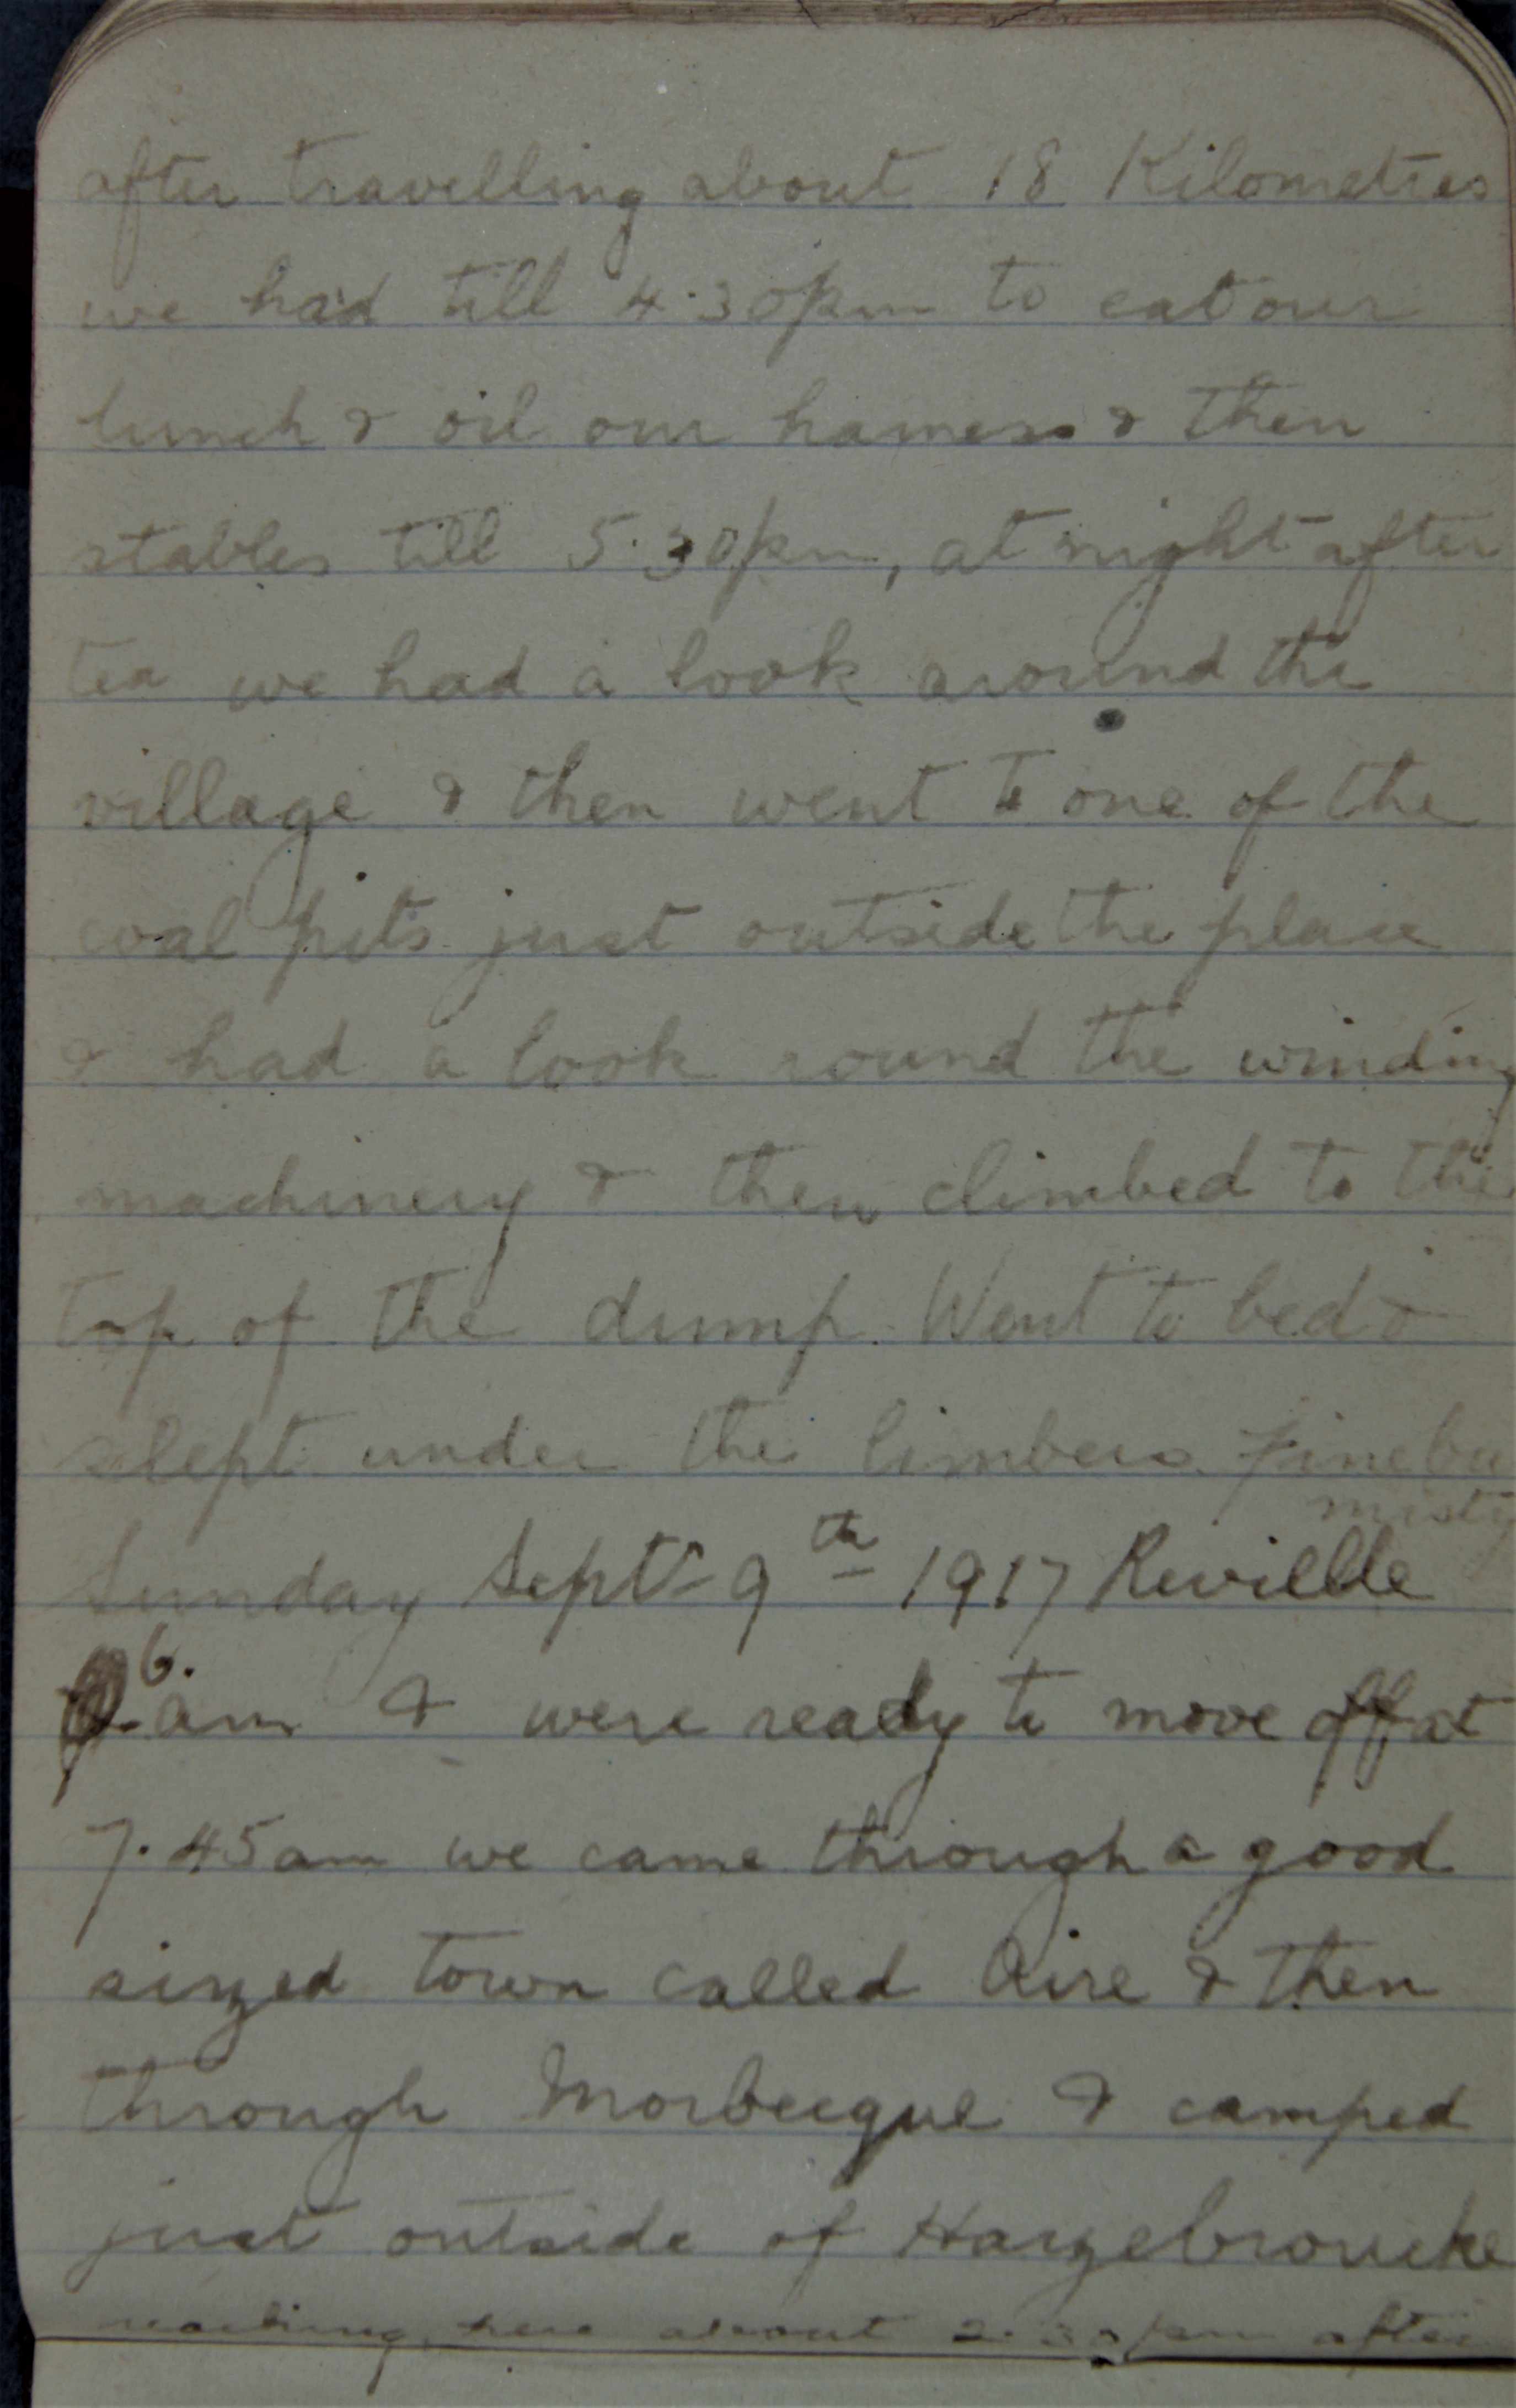 after travelling about 18 Kilometres
we had till 4.30pm to eat our
lunch & oil our harness & then
stables till 5.30pm, at night after
tea we had a look around the
village & then went to one of the
coal pits just outside the place
& had a look round the winding
machinery & then climbed to the
top of the dump. Went to bed &
slept under the limbers. Fine but
misty
Sunday Sept 9th 1917 Reveille
6. am & were ready to move off at
7.45am we came through a good
sized town called Aire & then
through Morbecque & camped
just outside of Hazebroucke
reaching here about 2.30pm after